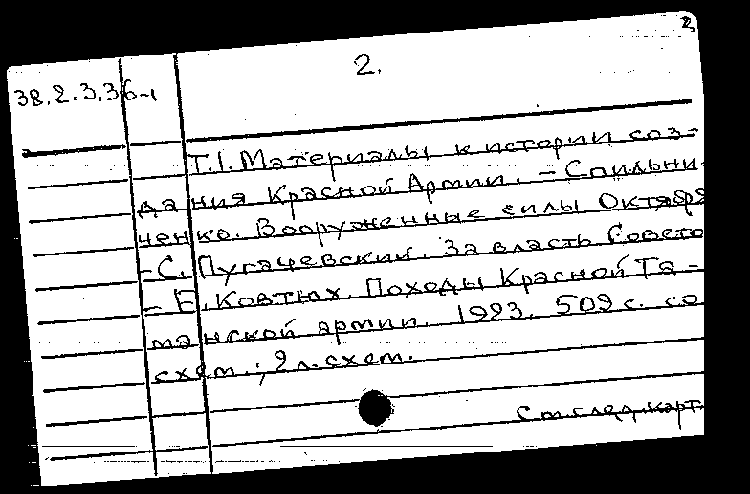 2
2.
38.2.3.36-1
Т.1. Материалы к истории соз-
дания Красной Армии. – Спильни-
ченко. Вооруженные силы Октябр
– С. Пугачевский. За власть Совето
– Е. Ковтюх. Походы Красной Та-
манской армии. 1923. 509 с. со
схем.; 2 л. схем.
См. след. карт.